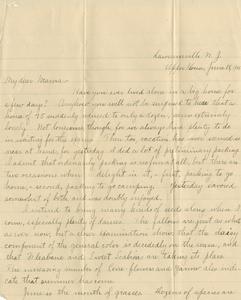 Lawrenceville N. J.
Upper House, June 18, 19
My dear Mamma:-
Have you ever lived alone in a big house for
a few days? Anyhow you will not be surprised to hear that a
home of 25 suddenly reduced to only a dozen, seems extremely
lonely. Not lonesome though, for we always find plenty to do
in waiting for the spring. Then too vacation has some several
areas at hand, for yesterday I did a lot of preliminary packing.
I admit that ordinarily packing is awful fail, but there are
two occasions when I delight in it, - first, packing to go
home, - second, packing to go camping. Yesterday savored
somewhat of both and was doubly enjoyed.
I intend to bring many kinds of seed along when I
come, especially plants of daisies. The fallows are just as white
as ever now, but a close examination shows that the daisy
component of the general color is decidedly on the wane, and
that Fleabane and Sweet Scabious are taking its place.
The increasing number of Cone flowers and Yarrow also indi-
cate that summer has come.
June is the month of grasses. Dozens of species are